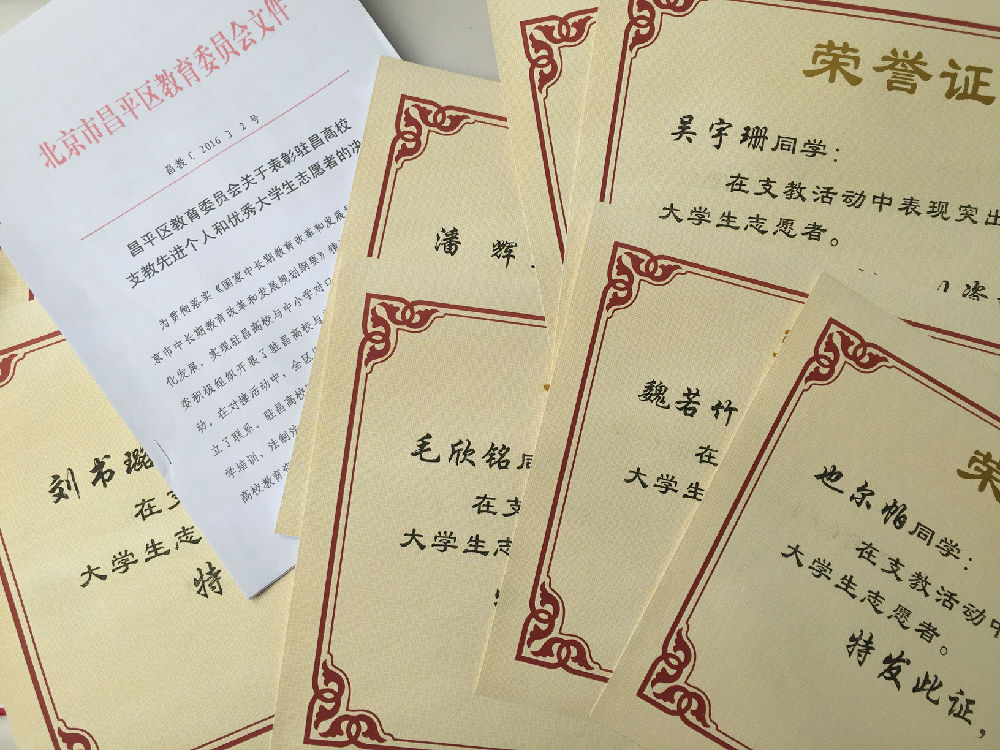 北京市昌平区教育委员会文件
昌教〔2016〕2号
昌平区教育委员会关于表彰驻昌高校
支教先进个人和优秀大学生志愿者的决
为贯彻落实《国家中长期教育改革和发展规
京市中长期教育改革和发展规划纲要》
化发展，实现驻昌高校与中小学对口
委积极组织开展了驻昌高校与
动。在对接活动中，全区
立了联系。驻昌高校
学培训、法制
高校教育
荣誉证
吴宇珊同学：
在支教活动中表现突出
大学生志愿者。
潘辉
刘书璐
在支
大学生志
特
毛欣铭同
在支
大学生志
魏若竹
在
大学生
荣
也尔帕同学：
在支教活动中
大学生志愿者。
特发此证，